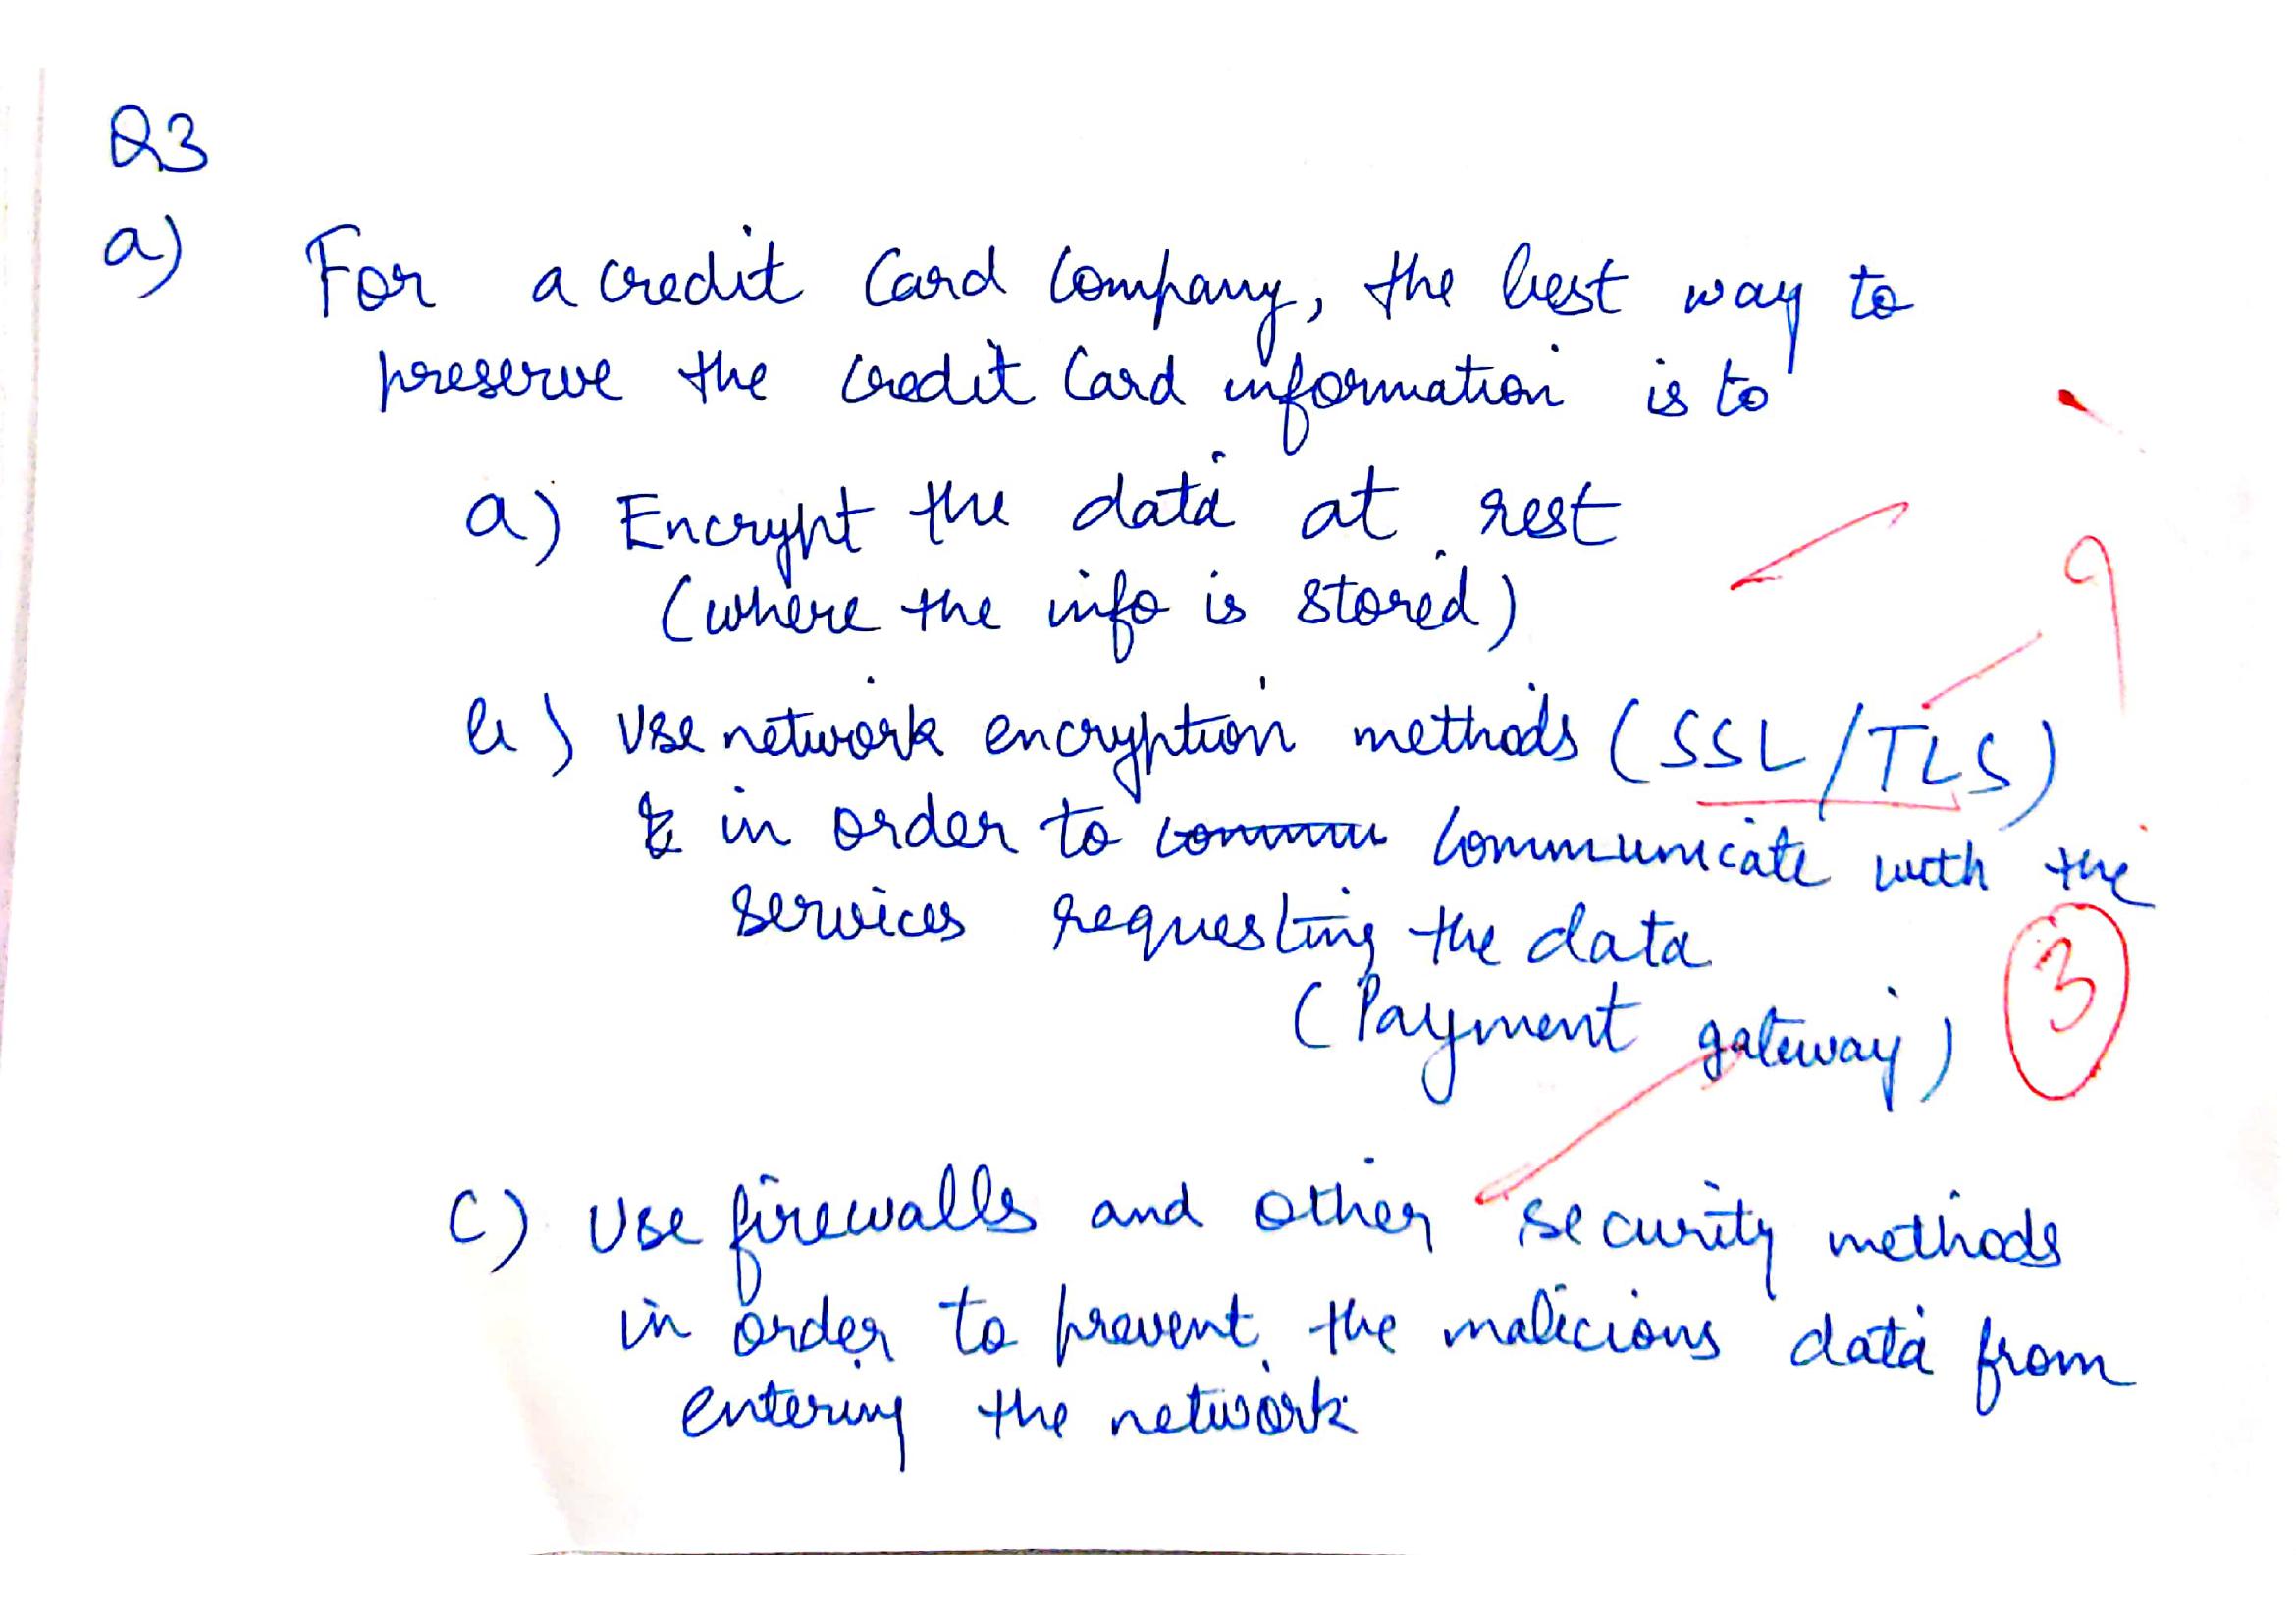 Q3
a) For a credit card company, the best way to
preserve the credit card information is to
a) Encrypt the data at rest
(where the info is stored)
b) Use network encryption methods (SSL/TLS)
in order to commu communicate with the
services requesting the data
(Payment gateway)
3
c) Use firewalls and other security methods
in order to prevent the malicious data from
entering the network